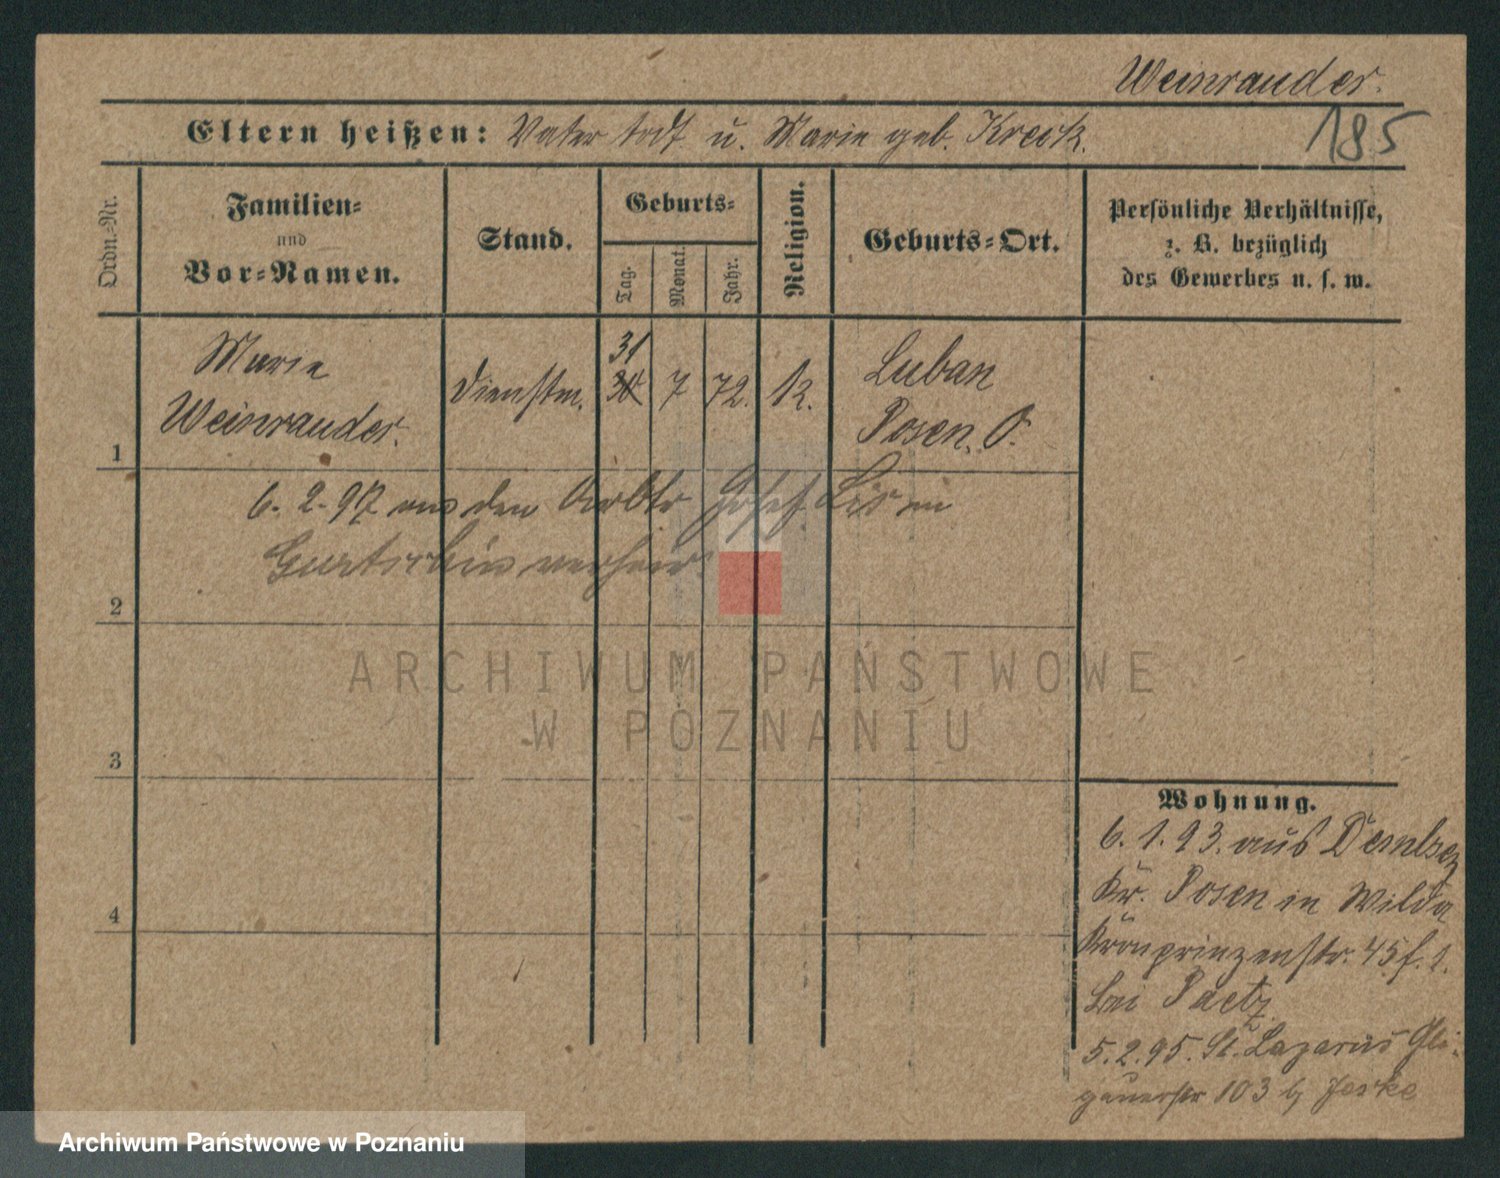 Weinrauder.
Eltern heißen: Vater todt u. Marie geb. Kreok.
185
Ordn.-Nr.
Familien-
und
Vor-Namen.
Stand.
Geburts-
Tag.
Monat.
Jahr.
Religion.
Geburts-Ort.
Persönliche Verhältnisse,
z. B. bezüglich
des Gewerbes u. s. w.
1
Marie
Weinrauder.
Dienstm.
31
30
7
72.
k.
Luban
Posen. O.
6. 2. 97 an den Arbtr Josef Lis in
Gurtschin verheir.
2
3
4
Wohnung.
6. 1. 93. aus Dembsen
Kr. Posen in Wilda
Kronprinzenstr. 45 f. 1.
bei Paetz.
5. 2. 95. St. Lazarus Glo-
gauerstr 103 b Jeske
ARCHIWUM PAŃSTWOWE
W POZNANIU
Archiwum Państwowe w Poznaniu